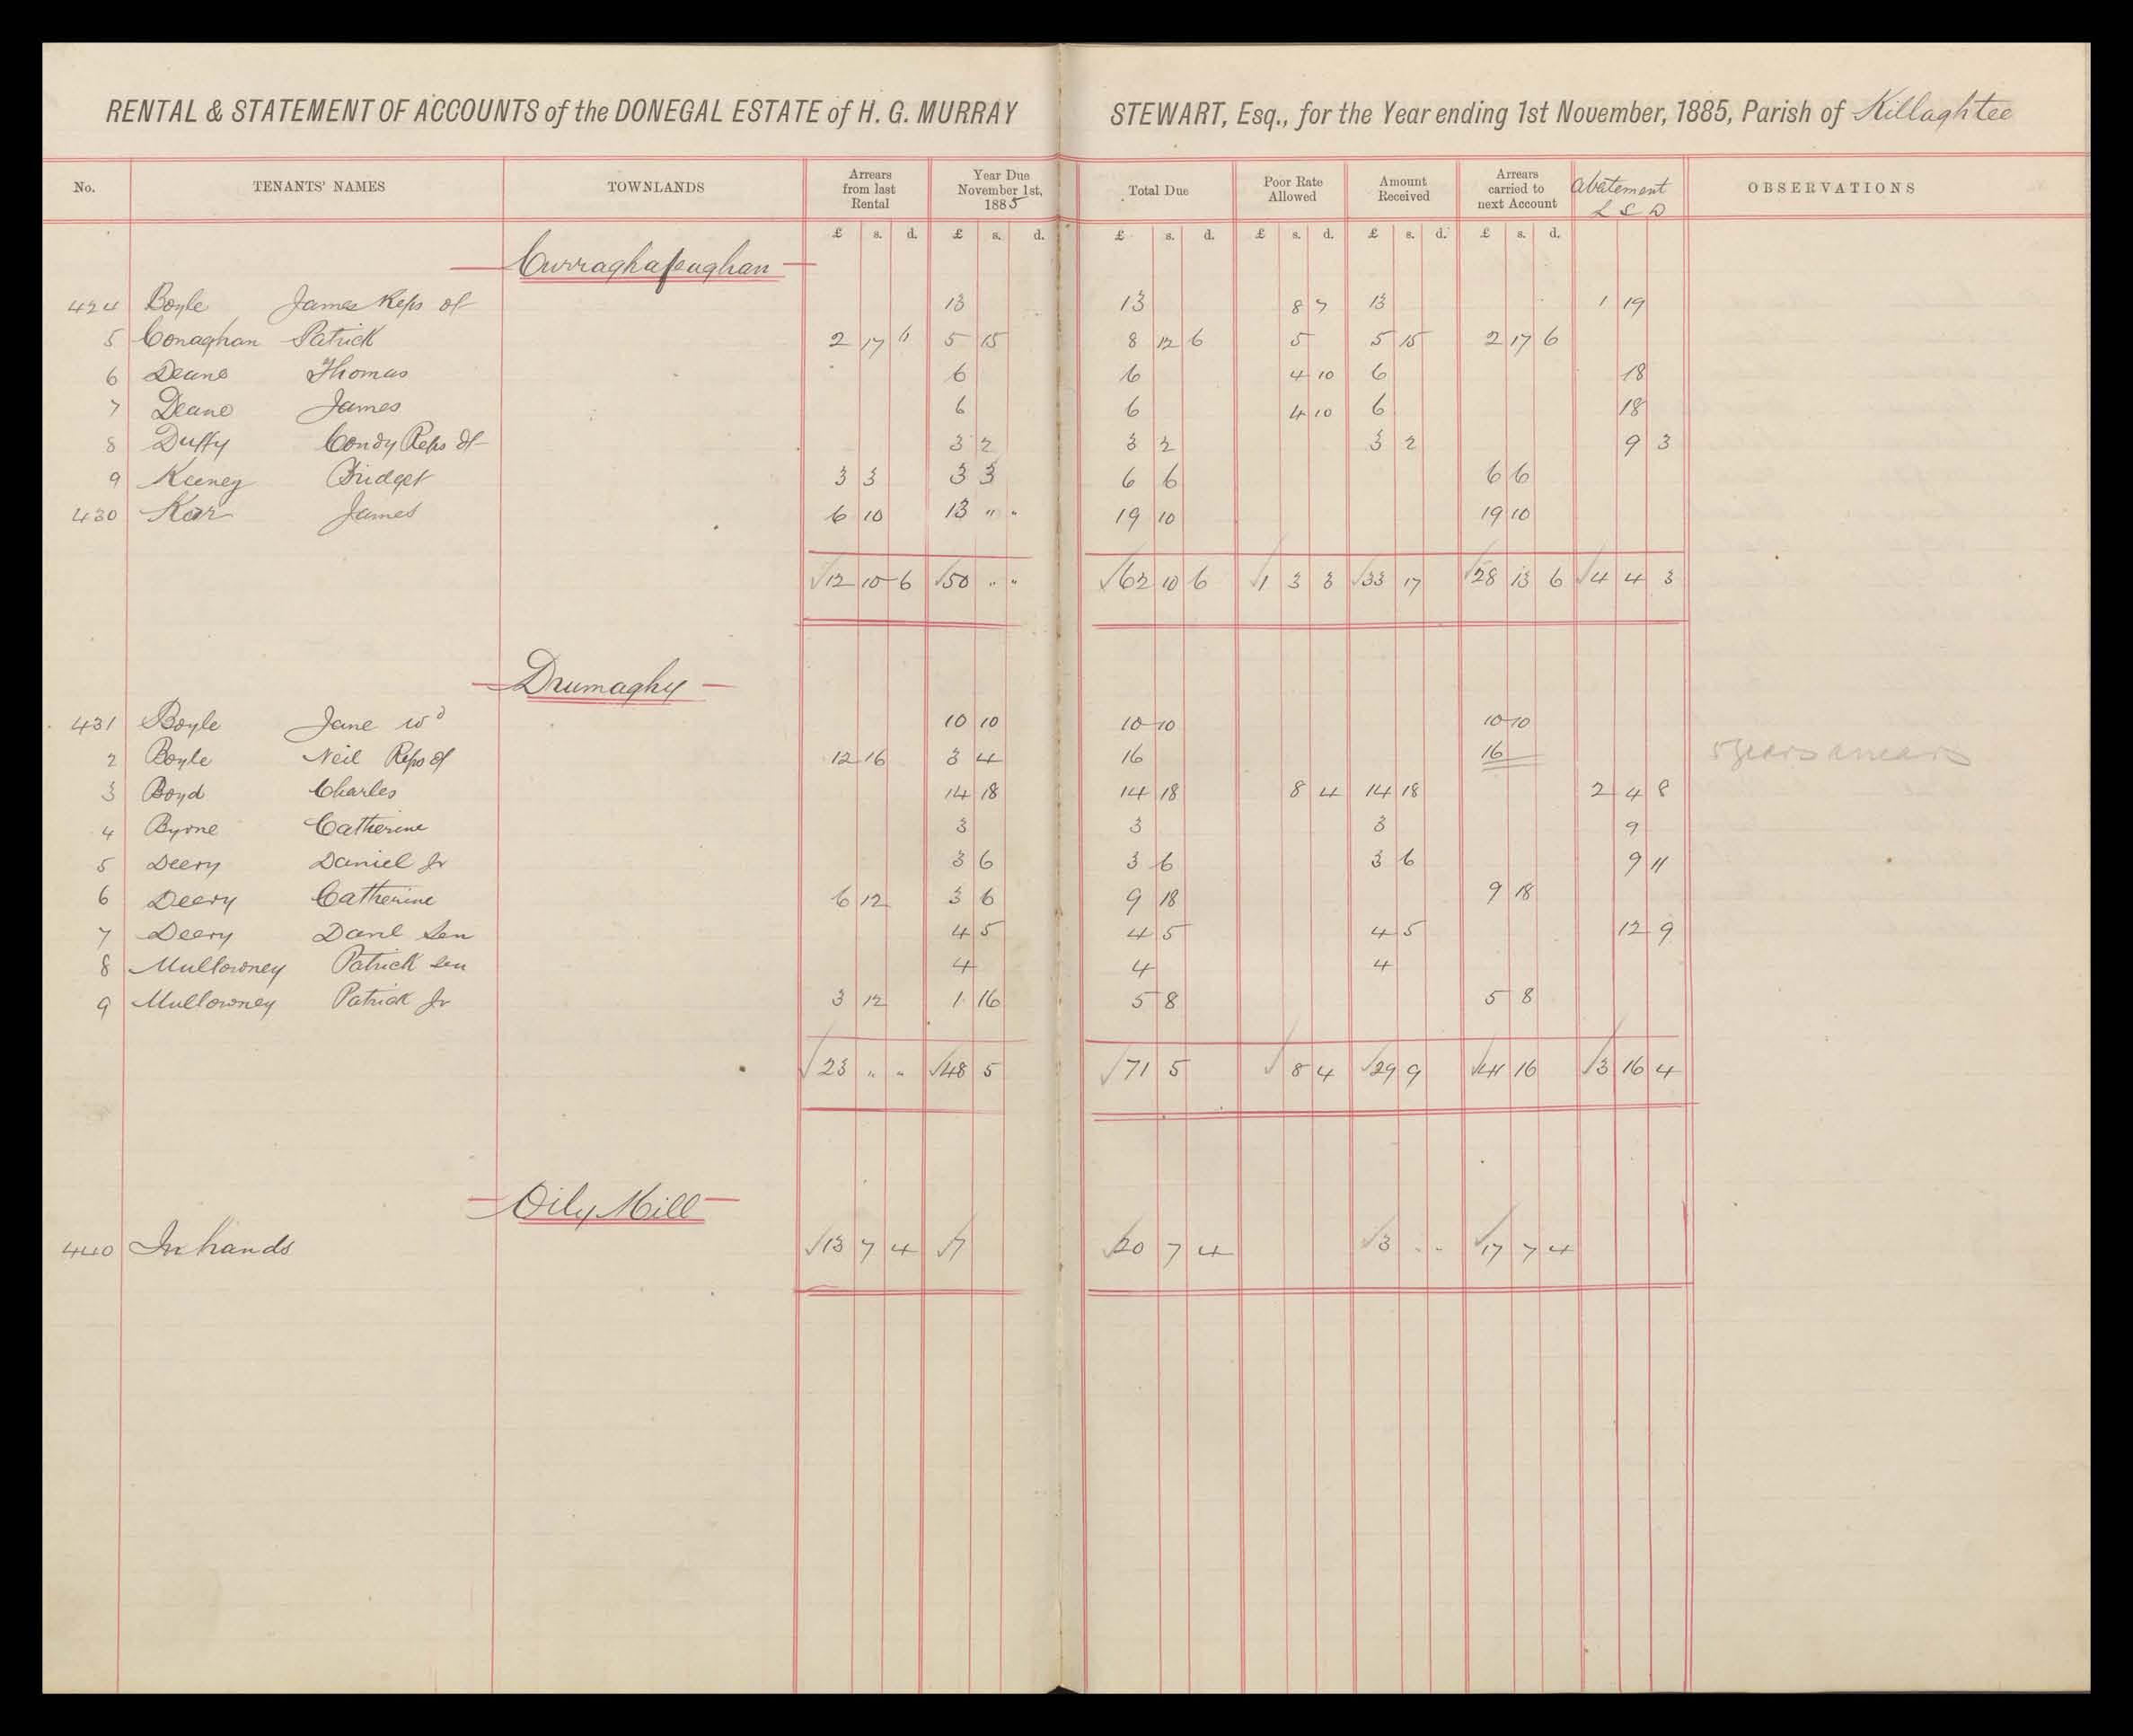 RENTAL & STATEMENT OF ACCOUNTS of the DONEGAL ESTATE of H. G. MURRAY STEWART, Esq., for the Year ending 1st November, 1885, Parish of Killaghtee
No. TENANTS' NAMES TOWNLANDS Arrears from last Rental Year Due November 1st, 1885 Total Due Poor Rate Allowed Amount Received Arrears carried to next Account Abatement £ S D OBSERVATIONS
£ s. d. £ s. d. £ s. d. £ s. d. £ s. d. £ s. d.
424 Boyle James Reps of 13 13 8 7 13 1 19
5 Conaghan Patrick 2 17 6 5 15 8 12 6 5 5 15 2 17 6
6 Deane Thomas 6 6 4 10 6 18
7 Deane James 6 6 4 10 6 18
8 Duffy Condy Reps of 3 2 3 2 3 2 9 3
9 Keeney Bridget 3 3 3 3 6 6 6 6
430 Kerr James 6 10 13 " " 19 10 19 10
√12 10 6 √50 " " √62 10 6 √1 3 3 √33 17 √28 13 6 √4 4 3
Drumaghy
431 Boyle Jane wd 10 10 10 10 10 10
2 Boyle Neil Reps of 12 16 3 4 16 16 5 years arrears
3 Boyd Charles 14 18 14 18 8 4 14 18 2 4 8
4 Byrne Catherine 3 3 3 9
5 Deery Daniel Jr 3 6 3 6 3 6 9 11
6 Deery Catherine 6 12 3 6 9 18 9 18
7 Deery Danl Sen 4 5 4 5 4 5 12 9
8 Mullowney Patrick Sen 4 4 4
9 Mullowney Patrick Jr 3 12 1 16 5 8 5 8
√23 " " √48 5 √71 5 √ 8 4 √29 9 √41 16 √3 16 4
Oily Mill
440 In hands √13 7 4 √7 √20 7 4 √3 " " √17 7 4